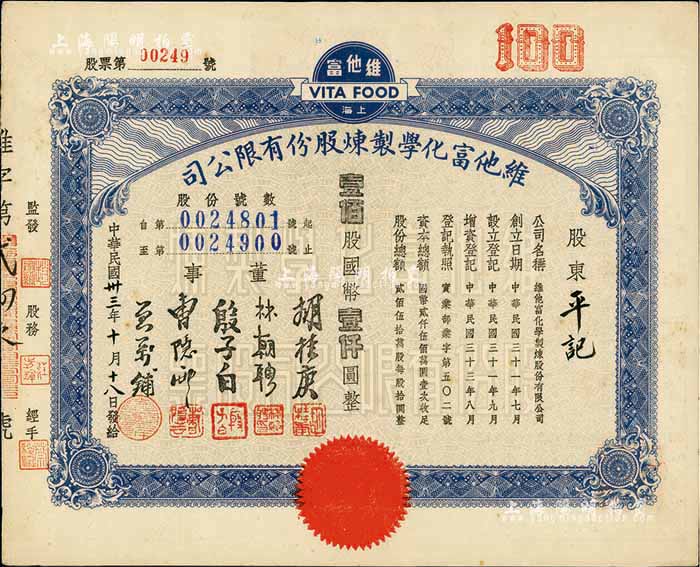 上海陽明拍賣
股票第 00249 號
100
維他富
VITA FOOD
上海
維他富化學製煉股份有限公司
股東 平記
公司名稱 維他富化學製煉股份有限公司
創立日期 中華民國三十一年七月
設立登記 中華民國三十一年九月
增資登記 中華民國三十三年八月
登記執照 實業部業字第五〇二號
資本總額 國幣貳仟伍佰萬圓壹次收足
股份總額 貳佰伍拾萬股每股拾圓整
壹佰股國幣壹仟圓整
股份號數
自第 0024801 號起
至第 0024900 號止
董事
胡桂庚
林朝聘
殷子白
曹隱邨
中華民國卅三年十月十八日發給
監發
股務
經手
維字第貳四九號